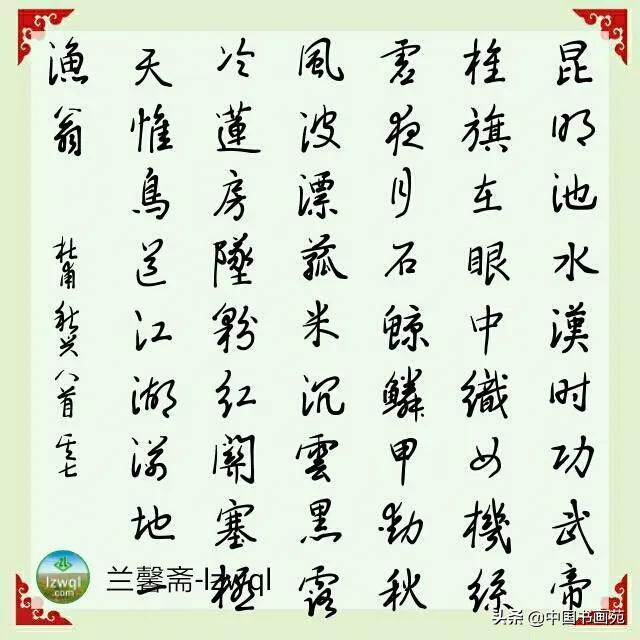 昆明池水漢时功武帝
旌旗在眼中織女機絲
虚夜月石鲸鳞甲動秋
風波漂菰米沉雲黑露
冷蓮房墜粉红關塞極
天惟鳥道江湖滿地一
漁翁
杜甫 秋兴八首 其七
lzwql
.com
兰馨斋-lzwql
头条 @中国书画苑